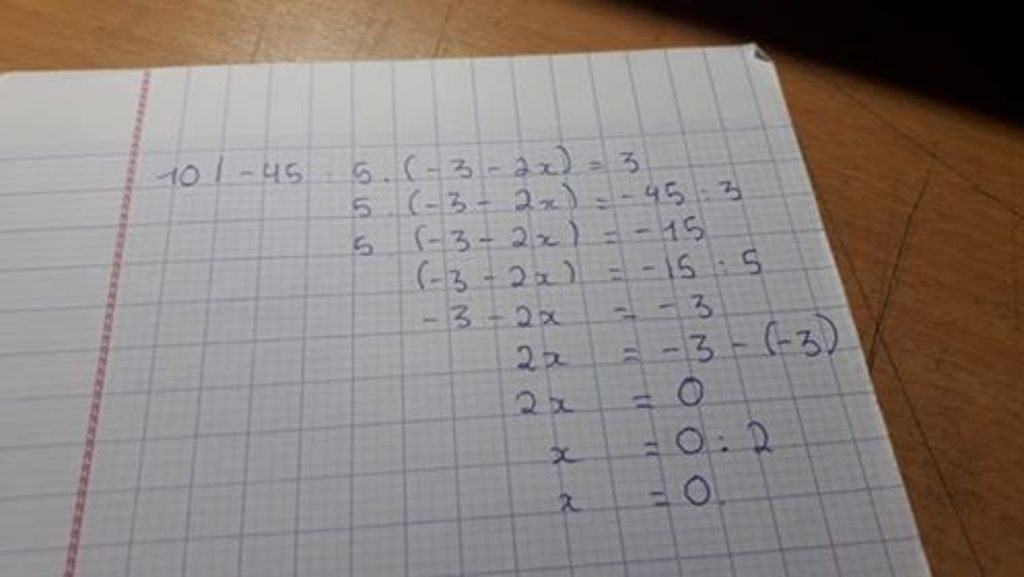 10/ -45 : 5 . (-3 - 2x) = 3
5 . (-3 - 2x) = -45 : 3
5 (-3 - 2x) = -15
(-3 - 2x) = -15 : 5
-3 - 2x = -3
2x = -3 - (-3)
2x = 0
x = 0 : 2
x = 0.